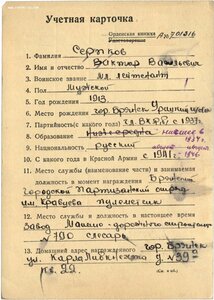 Учетная карточка
Орденская книжка
А № 701316
Удостоверение
1. Фамилия Сериков
2. Имя и отчество Виктор Васильевич
3. Воинское звание мл. лейтенант
4. Пол Мужской
5. Год рождения 1913
6. Место рождения гор. Брянск Урицкий
7. Партийность (с какого года) чл. ВКП(б) с 1939г
8. Образование низшее в
1934г.
9. Национальность русский
10. С какого года в Красной Армии с 1941 1946
11. Место службы (наименование части) и занимаемая
должность в момент награждения Брянский
Городской Партизанский отряд
им Кравцова пулеметчик
12. Место службы и должность в настоящее время
Завод
№ 100 слесарь
13. Домашний адрес награжденного гор. Брянск
ул. Карла Либкнехта д. № 39
кв. 22.